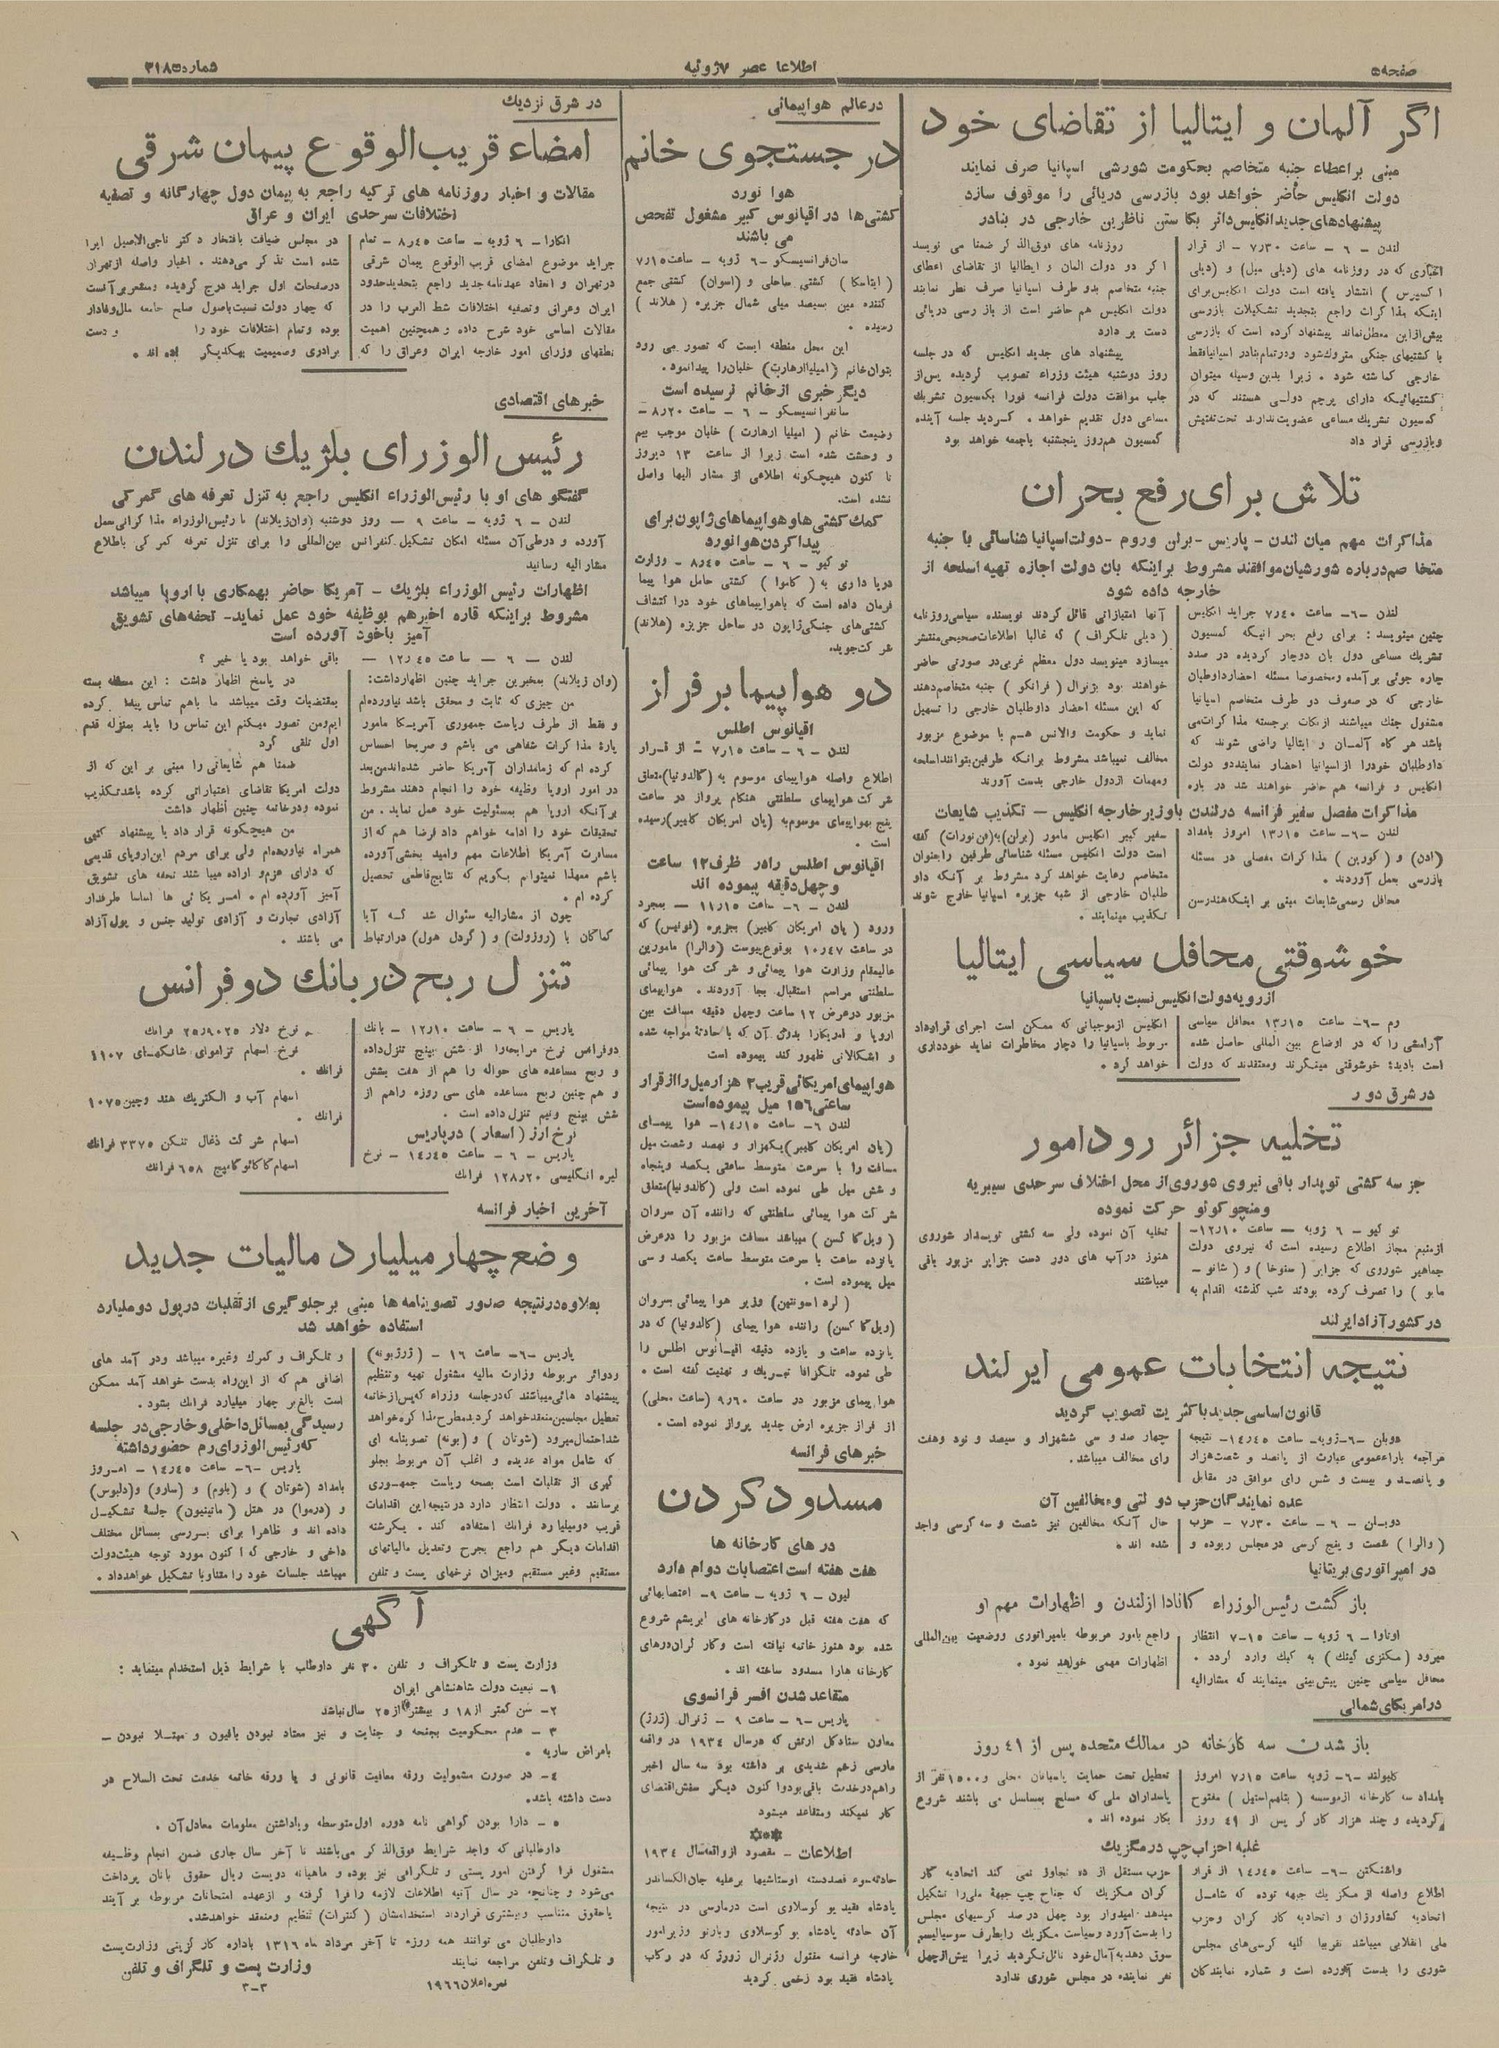 صفحه ۵
اطلاعات عصر ۷ ژوئیه
شماره ۳۱۸۵
اگر آلمان و ایتالیا از تقاضای خود
مبنی براعطاء جنبه متخاصم بحکومت شورشی اسپانیا صرف نمایند
دولت انگلیس حاضر خواهد بود بازرسی دریائی را موقوف سازد
پیشنهادهای جدید انگلیس دائر بگماشتن ناظرین خارجی در بنادر
لندن – ۶ – ساعت ۷٫۳۰ – از قرار
اخباری که در روزنامه های (دیلی میل) و (دیلی
اکسپرس) انتشار یافته است دولت انگلیس برای
اینکه مذاکرات راجع بتجدید تشکیلات بازرسی
بیش از این معطل نماند پیشنهاد کرده است که بازرسی
با کشتیهای جنگی متروک شود و در تمام بنادر اسپانیا فقط
خارجی گماشته شود . زیرا بدین وسیله میتوان
کشتیهائیکه دارای پرچم دولی هستند که در
کمسیون تشریک مساعی عضویت ندارند تحت تفتیش
و بازرسی قرار داد
روزنامه های فوق الذکر ضمنا می نویسد
اگر دو دولت المان و ایطالیا از تقاضای اعطای
جنبه متخاصم بدو طرف اسپانیا صرف نظر نمایند
دولت انگلیس هم حاضر است از باز رسی دریائی
دست بر دارد
پیشنهاد های جدید انگلیس که در جلسه
روز دوشنبه هیئت وزراء تصویب گردیده پس از
جلب موافقت دولت فرانسه فورا بکمسیون تشریک
مساعی دول تقدیم خواهد . گردید جلسه آینده
کمسیون هم روز پنجشنبه یا جمعه خواهد بود
تلاش برای رفع بحران
مذاکرات مهم میان لندن – پاریس – برلن وروم – دولت اسپانیا شناسائی با جنبه
متخاصم درباره شورشیان موافقند مشروط براینکه بان دولت اجازه تهیه اسلحه از
خارجه داده شود
لندن –۶– ساعت ۷٫۴۰ جراید انگلیس
چنین مینویسد : برای رفع بحرانیکه کمسیون
تشریک مساعی دول بان دوچار گردیده در صدد
چاره جوئی برآمده و مخصوصا مسئله احضار داوطلبان
خارجی که در صفوف دو طرف متخاصم اسپانیا
مشغول جنگ میباشند از نکات برجسته مذاکرات می
باشد هر گاه آلمان و ایتالیا راضی شوند که
داوطلبان خود را از اسپانیا احضار نمایند دو دولت
انگلیس و فرانسه هم حاضر خواهند شد در باره
آنها امتیازاتی قائل گردند نویسنده سیاسی روزنامه
(دیلی تلگراف) که غالبا اطلاعات صحیحی منتشر
میسازد مینویسد دول معظم غربی در صورتی حاضر
خواهند بود بژنرال (فرانکو) جنبه متخاصم دهند
که این مسئله احضار داوطلبان خارجی را تسهیل
نماید و حکومت والانس هم با موضوع مزبور
مخالف نمیباشد مشروط برآنکه طرفین بتوانند اسلحه
و مهمات از دول خارجی بدست آورند
مذاکرات مفصل سفیر فرانسه در لندن با وزیر خارجه انگلیس – تکذیب شایعات
لندن –۶– ساعت ۱۳٫۱۵ امروز بامداد
(ادن) و (کوربن) مذاکرات مفصلی در مسئله
بازرسی بعمل آوردند .
محافل رسمی شایعات مبنی بر اینکه هندرسن
سفیر کبیر انگلیس مامور (برلن) به (فن نورات) گفته
است دولت انگلیس مسئله شناسائی طرفین را بعنوان
متخاصم رعایت خواهد کرد مشروط بر آنکه داو
طلبان خارجی از شبه جزیره اسپانیا خارج شوند
تکذیب مینمایند .
خوشوقتی محافل سیاسی ایتالیا
از رویه دولت انگلیس نسبت باسپانیا
رم –۶– ساعت ۱۳٫۱۵ محافل سیاسی
آرامشی را که در اوضاع بین المللی حاصل شده
است بادیدۀ خوشوقتی مینگرند و معتقدند که دولت
انگلیس از موجباتی که ممکن است اجرای قرارداد
مربوط باسپانیا را دچار مخاطرات نماید خودداری
خواهد کرد .
در شرق دور
تخلیه جزائر رود امور
جز سه کشتی توپدار باقی نیروی شوروی از محل اختلاف سرحدی سیبریه
و منچوکوئو حرکت نموده
توکیو – ۶ ژویه – ساعت ۱۲٫۱۰–
از منبع مجاز اطلاع رسیده است که نیروی دولت
جماهیر شوروی که جزایر (سنوخا) و (شانو –
مابو) را تصرف کرده بودند شب گذشته اقدام به
تخلیه آن نموده ولی سه کشتی توپدار شوروی
هنوز در آب های دور دست جزایر مزبور باقی
میباشند
در کشور آزاد ایرلند
نتیجه انتخابات عمومی ایرلند
قانون اساسی جدید با کثریت تصویب گردید
دوبلن –۶– ژویه– ساعت ۱۴٫۴۵– نتیجه
مراجعه باراء عمومی عبارت از پانصد و شصت هزار
و پانصد و بیست و شش رای موافق در مقابل
چهار صد و سی ششهزار و سیصد و نود و هفت
رای مخالف میباشد .
عده نمایندگان حزب دولتی و مخالفین آن
دوبلن – ۶ – ساعت ۷٫۳۰ – حزب
(والرا) شصت و پنج کرسی در مجلس ربوده و
حال آنکه مخالفین نیز شصت و سه کرسی واجد
شده اند .
در امپراتوری بریتانیا
باز گشت رئیس الوزراء کانادا از لندن و اظهارات مهم او
اوتاوا – ۶ ژویه – ساعت ۱۵–۷ انتظار
میرود (مکنزی کینگ) به کبک وارد گردد .
محافل سیاسی چنین پیش بینی مینمایند که مشارالیه
راجع بامور مربوطه بامپراتوری و وضعیت بین المللی
اظهارات مهمی خواهد نمود .
در امریکای شمالی
باز شدن سه کارخانه در ممالک متحده پس از ۴۱ روز
کلیولند –۶– ژویه ساعت ۷٫۱۵ امروز
بامداد سه کارخانه از موسسه (بتلهم استیل) مفتوح
گردیده و چند هزار کار گر پس از ۴۱ روز
تعطیل تحت حمایت پاسبانان محلی و ۱۵۰۰ نفر از
پاسداران ملی که مسلح بمسلسل می باشند شروع
بکار نموده اند .
غلبه احزاب چپ در مکزیک
واشنگتن –۶– ساعت ۱۴٫۴۵ از قرار
اطلاع واصله از مکزیک جبهه توده که شامل
اتحادیه کشاورزان و اتحادیه کار گران و حزب
ملی انقلابی میباشد تقریبا کلیه کرسی های مجلس
شوری را بدست آورده است و شماره نمایندگان
حزب مستقل از ده تجاوز نمی کند اتحادیه کار
گران مکزیک که جناح چپ جبههٔ ملی را تشکیل
میدهد امیدوار بود چهل در صد کرسیهای مجلس
را بدست آورد و سیاست مکزیک را بطرف سوسیالیسم
سوق دهد به آمال خود نائل نگردید زیرا بیش از چهل
نفر نماینده در مجلس شوری ندارد
در عالم هواپیمائی
در جستجوی خانم
هوا نورد
کشتی ها در اقیانوس کبیر مشغول تفحص
می باشند
سان فرانسیسکو – ۶ ژویه – ساعت ۷٫۱۵
(ایتاسکا) کشتی ساحلی و (اسوان) کشتی جمع
کننده مین بسیصد میلی شمال جزیره (هلاند)
رسیده .
این محل منطقه ایست که تصور می رود
بتوان خانم (امیلیا ارهارت) خلبان را پیدا نمود .
دیگر خبری از خانم نرسیده است
سانفرانسیسکو – ۶ – ساعت ۸٫۲۰ –
وضعیت خانم (امیلیا ارهارت) خلبان موجب بیم
و وحشت شده است زیرا از ساعت ۱۳ دیروز
تا کنون هیچگونه اطلاعی از مشار الیها واصل
نشده است.
کمک کشتی ها و هواپیماهای ژاپون برای
پیدا کردن هوانورد
توکیو – ۶ – ساعت ۸٫۴۵ – وزارت
دریاداری به (کاموا) کشتی حامل هوا پیما
فرمان داده است که با هواپیماهای خود در اکتشاف
کشتی های جنگی ژاپون در ساحل جزیره (هلاند)
شرکت جوید.
دو هواپیما بر فراز
اقیانوس اطلس
لندن – ۶ – ساعت ۷٫۱۵ – از قرار
اطلاع واصله هواپیمای موسوم به (کالدونیا) متعلق
شرکت هواپیمای سلطنتی هنگام پرواز در ساعت
پنج بهواپیمای موسوم به (پان امریکان کلیپر) رسیده
است .
اقیانوس اطلس را در ظرف ۱۲ ساعت
و چهل دقیقه پیموده اند
لندن – ۶ – ساعت ۱۱٫۱۵ – بمجرد
ورود (پان امریکان کلیپر) بجزیره (فونیس) که
در ساعت ۱۰٫۴۷ بوقوع پیوست (والرا) مامورین
عالیمقام وزارت هوا پیمائی و شرکت هوا پیمائی
سلطنتی مراسم استقبال بجا آوردند . هواپیمای
مزبور در عرض ۱۲ ساعت و چهل دقیقه مسافت بین
اروپا و امریکا را بدون آن که با حادثۀ مواجه شده
و اشکالاتی ظهور کند پیموده است
هواپیمای امریکائی قریب ۲ هزار میل را از قرار
ساعتی ۱۵۶ میل پیموده است
لندن – ۶ – ساعت ۱۴٫۱۵ – هوا پیمای
(پان امریکان کلیپر) یکهزار و نهصد و شصت میل
مسافت را با سرعت متوسط ساعتی یکصد و پنجاه
و شش میل طی نموده است ولی (کالدونیا) متعلق
شرکت هوا پیمائی سلطنتی که راننده آن سروان
(ویل کا کسن) میباشد مسافت مزبور را در عرض
پانزده ساعت با سرعت متوسط ساعت یکصد و سی
میل پیموده است .
(لرد اسونتین) وزیر هوا پیمائی بسروان
(ویل کا کسن) راننده هوا پیمای (کالدونیا) که در
پانزده ساعت و یازده دقیقه اقیانوس اطلس را
طی نموده تلگرافا تبریک و تهنیت گفته است .
هوا پیمای مزبور در ساعت ۹٫۶۰ (ساعت محلی)
از فراز جزیره ارض جدید پرواز نموده است .
خبر های فرانسه
مسدود کردن
در های کارخانه ها
هفت هفته است اعتصابات دوام دارد
لیون – ۶ ژویه – ساعت ۹– اعتصابهائی
که هفت هفته قبل در کارخانه های ابریشم شروع
شده بود هنوز خاتمه نیافته است و کار گران درهای
کارخانه هارا مسدود ساخته اند .
متقاعد شدن افسر فرانسوی
پاریس –۶– ساعت ۹ – ژنرال (ژرژ)
معاون ستاد کل ارتش که در سال ۱۹۳۴ در واقعه
مارسی زخم شدیدی بر داشته بود سه سال اخیر
راهم در خدمت باقی بود و اکنون دیگر سنش اقتضای
کار نمیکند و متقاعد میشود
***
اطلاعات – مقصود از واقعه سال ۱۹۳۴
حادثه سوء قصد دسته اوستاشیها بر علیه جان الکساندر
پادشاه فقید یو گوسلاوی است در مارسی در نتیجه
آن حادثه پادشاه یو گوسلاوی و بارتو وزیر امور
خارجه فرانسه مقتول و ژنرال ژورژ که در رکاب
پادشاه فقید بود زخمی گردید
در شرق نزدیک
امضاء قریب الوقوع پیمان شرقی
مقالات و اخبار روزنامه های ترکیه راجع به پیمان دول چهارگانه و تصفیه
اختلافات سرحدی ایران و عراق
انکارا – ۶ ژویه – ساعت ۸٫۴۵ – تمام
جراید موضوع امضای قریب الوقوع پیمان شرقی
در تهران و انعقاد عهدنامه جدید راجع بتحدید حدود
ایران و عراق و تصفیه اختلافات شط العرب را در
مقالات اساسی خود شرح داده و همچنین اهمیت
نطقهای وزرای امور خارجه ایران و عراق را که
در مجلس ضیافت بافتخار دکتر ناجی الاصیل ایراد
شده است تذکر می دهند . اخبار واصله از تهران
در صفحات اول جراید درج گردیده و مشعر بر آنست
که چهار دولت نسبت باصول صلح جامعه ملل وفادار
بوده و تمام اختلافات خود را و دست
برادری و صمیمیت بیکدیگر داده اند .
خبر های اقتصادی
رئیس الوزرای بلژیک در لندن
گفتگو های او با رئیس الوزراء انگلیس راجع به تنزل تعرفه های گمرکی
لندن – ۶ ژویه – ساعت ۹ – روز دوشنبه (وان زیلاند) با رئیس الوزراء مذاکراتی بعمل
آورده و در طی آن مسئله امکان تشکیل کنفرانس بین المللی را برای تنزل تعرفه گمرکی باطلاع
مشار الیه رسانید
اظهارات رئیس الوزراء بلژیک – آمریکا حاضر بهمکاری با اروپا میباشد
مشروط براینکه قاره اخیر هم بوظیفه خود عمل نماید – تحفه های تشویق
آمیز با خود آورده است
لندن – ۶ – ساعت ۱۲٫۴۵ –
(وان زیلاند) بمخبرین جراید چنین اظهار داشت:
من چیزی که ثابت و محقق باشد نیاورده ام
و فقط از طرف ریاست جمهوری آمریکا مامور
پارۀ مذاکرات شفاهی می باشم و صریحا احساس
کرده ام که زمامداران آمریکا حاضر شده اند من بعد
در امور اروپا وظیفه خود را انجام دهند مشروط
بر آنکه اروپا هم بمسئولیت خود عمل نماید . من
تحقیقات خود را ادامه خواهم داد فرضا هم که از
مسافرت آمریکا اطلاعات مهم و امید بخشی آورده
باشم معهذا نمیتوانم بگویم که نتایج قاطعی تحصیل
کرده ام .
چون از مشارالیه سئوال شد که آیا
کماکان با (روزولت) و (گردل هول) در ارتباط
باقی خواهد بود یا خیر ؟
در پاسخ اظهار داشت : این مسئله بسته
بمقتضیات وقت میباشد ما باهم تماس پیدا کرده
ایم و من تصور میکنم این تماس را باید بمنزله قدم
اول تلقی کرد
ضمنا هم شایعاتی را مبنی بر این که از
دولت امریکا تقاضای اعتباراتی کرده باشد تکذیب
نموده و در خاتمه چنین اظهار داشت
من هیچگونه قرار داد یا پیشنهاد کتبی
همراه نیاورده ام ولی برای مردم این اروپای قدیمی
که دارای عزم و اراده میبا شند تحفه های تشویق
آمیز آورده ام . امریکائی ها اساسا طرفدار
آزادی تجارت و آزادی تولید جنس و پول آزاد
می باشند .
تنزل ربح در بانک دو فرانس
پاریس – ۶ – ساعت ۱۲٫۱۰ – بانک
دو فرانس نرخ مرابحه را از شش بپنج تنزل داده
و ربح مساعده های حواله را هم از هفت بشش
و هم چنین ربح مساعده های سی روزه راهم از
شش بپنج و نیم تنزل داده است .
نرخ ارز (اسعار) در پاریس
پاریس – ۶ – ساعت ۱۴٫۴۵ – نرخ
لیره انگلیسی ۱۲۸٫۲۰ فرانک
نرخ دلار ۲۵٫۹۰۲۵ فرانک
نرخ اسهام تراموای شانگهای ۴۱۰۷
فرانک .
اسهام آب و الکتریک هند و چین ۱۰۷۵
فرانک .
اسهام شرکت ذغال تنکن ۳۳۷۵ فرانک
اسهام کاکائو کامپج ۶۵۸ فرانک
آخرین اخبار فرانسه
وضع چهار میلیارد مالیات جدید
بعلاوه در نتیجه صدور تصویبنامه ها مبنی بر جلوگیری از تقلبات در پول دو ملیارد
استفاده خواهد شد
پاریس –۶– ساعت ۱۶ – (ژرژ بونه)
و دوائر مربوطه وزارت مالیه مشغول تهیه و تنظیم
پیشنهاد هائی میباشند که در جلسه وزراء که پس از خاتمه
تعطیل مجلسین منعقد خواهد گردید مطرح مذاکره خواهد
شد احتمال میرود (شوتان) و (بونه) تصویبنامه ای
که شامل مواد عدیده و اغلب آن مربوط بجلو
گیری از تقلبات است بصحه ریاست جمهوری
برسانند . دولت انتظار دارد در نتیجه این اقدامات
قریب دو میلیارد فرانک استفاده کند . یکرشته
اقدامات دیگر هم راجع بجرح و تعدیل مالیاتهای
مستقیم و غیر مستقیم و میزان نرخهای پست و تلفن
و تلگراف و گمرک و غیره میباشد و در آمد های
اضافی هم که از این راه بدست خواهد آمد ممکن
است بالغ بر چهار میلیارد فرانک بشود .
رسیدگی بمسائل داخلی و خارجی در جلسه
که رئیس الوزرای رم حضور داشته
پاریس –۶– ساعت ۱۴٫۴۵ – امروز
بامداد (شوتان) و (بلوم) و (سارو) و (دلبوس)
و (درموا) در هتل (ماتینیون) جلسۀ تشکیل
داده اند و ظاهرا برای بررسی بمسائل مختلف
داخی و خارجی که اکنون مورد توجه هیئت دولت
میباشد جلسات خود را متناوبا تشکیل خواهد داد .
آگهی
وزارت پست و تلگراف و تلفن ۳۰ نفر داوطلب با شرایط ذیل استخدام مینماید :
۱– تبعیت دولت شاهنشاهی ایران
۲– سن کمتر از ۱۸ و بیشتر از ۲۵ سال نباشد
۳ – عدم محکومیت بجنحه و جنایت و نیز معتاد نبودن بافیون و مبتلا نبودن –
بامراض ساریه .
۴– در صورت مشمولیت ورقه معافیت قانونی و یا ورقه خاتمه خدمت تحت السلاح در
دست داشته باشد.
۵ – دارا بودن گواهی نامه دوره اول متوسطه و یا داشتن معلومات معادل آن .
داوطلبانی که واجد شرایط فوق الذکر می باشند تا آخر سال جاری ضمن انجام وظیفه
مشغول فرا گرفتن امور پستی و تلگرافی نیز بوده و ماهیانه دویست ریال حقوق بانان پرداخت
می شود و چنانچه در سال آتیه اطلاعات لازمه را فرا گرفته و از عهده امتحانات مربوطه بر آیند
با حقوق متناسب و بیشتری قرارداد استخدامشان (کنترات) تنظیم و منعقد خواهد شد.
داوطلبان می توانند همه روزه تا آخر مرداد ماه ۱۳۱۶ باداره کار گزینی وزارت پست
و تلگراف و تلفن مراجعه نمایند
وزارت پست و تلگراف و تلفن
نمره اعلان ۱۹۶۶
۳–۳